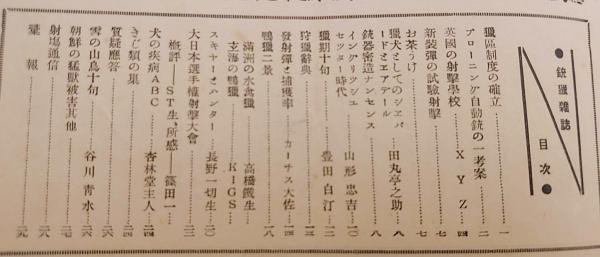 銃獵雜誌
目次
獵區制度の確立………一
ブローニング自動銃の一考案………二
英國の射擊學校………ＸＹＺ…四
新裝彈の試驗射擊………七
お茶うけ………七
獵犬としてのシエパードとエアデール…田丸亭之助…八
銃器密造ナンセンス………八
イングリッシュセッター時代…山形忠吉…一〇
獵期十旬………豊田白汀…一二
狩獵辭典………一三
發射彈と捕獲率……カーチス大佐…一四
鴨獵二景………一八
滿洲の水禽獵…高橋鐵生
支海の鴨獵…ＫＩＧＳ
スキヤーとハンター…長野一切生…二〇
大日本選手權射擊大會………二三
概評―ＳＴ生、所感―篠田一
犬の疾病ＡＢＣ………杏林堂主人…二四
きじ類の巢………二四
質疑應答………二六
雪の山鳥十句………谷川靑水…二六
朝鮮の猛獸被害其他………二七
射場通信………二八
彙報………二九